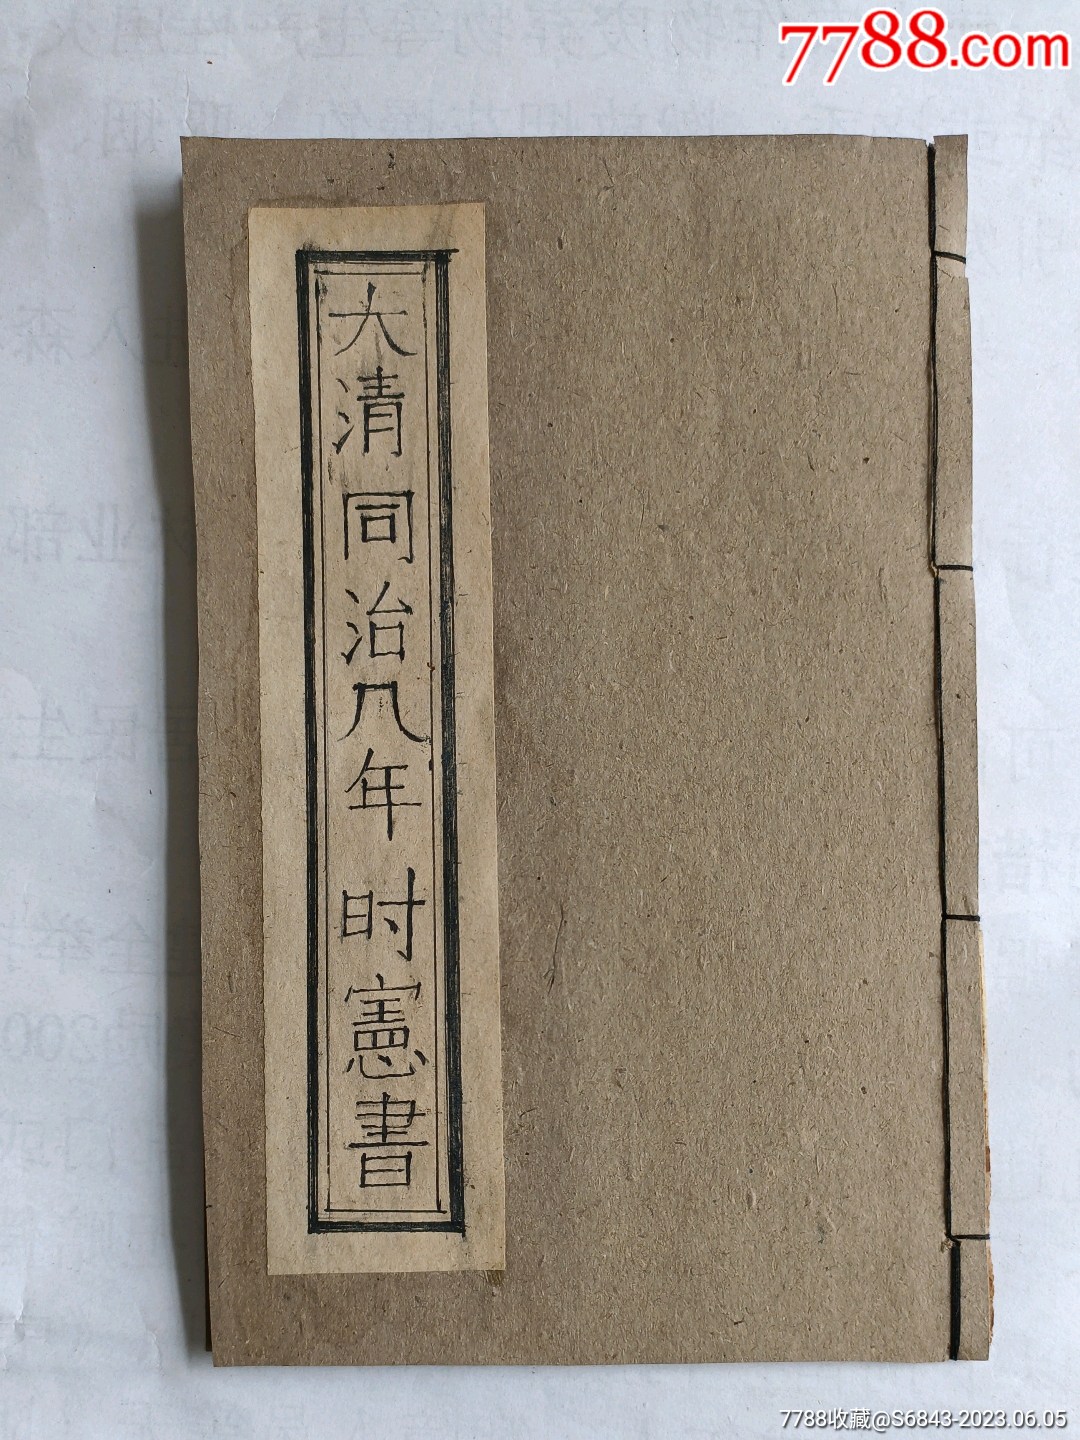 7788.com
大清同治八年时憲書
7788收藏@S6843-2023.06.05